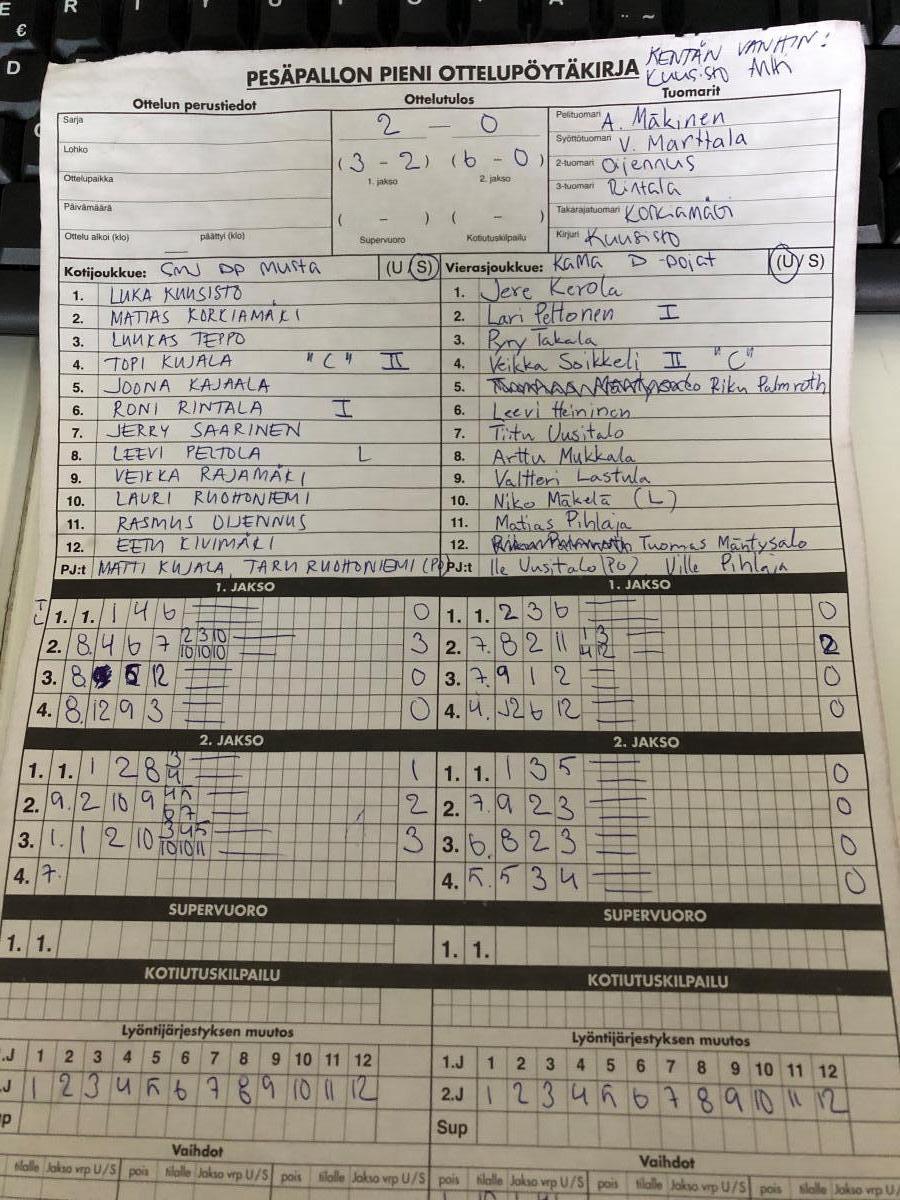 E R T Y U I O P
€
D
KENTÄN VANHIN:
PESÄPALLON PIENI OTTELUPÖYTÄKIRJA Kuusisto
Ottelun perustiedot Ottelutulos Tuomarit
Sarja
Lohko
Ottelupaikka
Päivämäärä
Ottelu alkoi (klo) päättyi (klo)
2 — 0
(3 - 2) (6 - 0)
1. jakso 2. jakso
( - ) ( - )
Supervuoro Kotiutuskilpailu
Pelituomari A. Mäkinen
Syöttötuomari V. Marttala
2-tuomari Oijennus
3-tuomari Rintala
Takarajatuomari Korkiamäki
Kirjuri Kuusisto
Kotijoukkue: SMJ DP Musta (U S)
1. LUKA KUUSISTO
2. MATIAS KORKIAMÄKI
3. LUUKAS TEPPO
4. TOPI KUJALA "C" II
5. JOONA KAJAALA
6. RONI RINTALA I
7. JERRY SAARINEN
8. LEEVI PELTOLA L
9. VEIKKA RAJAMÄKI
10. LAURI RUOHONIEMI
11. RASMUS OIJENNUS
12. EETU KIVIMÄKI
PJ:t MATTI KUJALA, TARU RUOHONIEMI
Vierasjoukkue: KaMa D-pojat (U/S)
1. Jere Kerola
2. Lari Peltonen I
3. Pyry Takala
4. Veikka Soikkeli II "C"
5. Riku Palmroth
6. Leevi Heininen
7. Tiitu Uusitalo
8. Arttu Mukkala
9. Valtteri Lastula
10. Niko Mäkelä (L)
11. Matias Pihlaja
12. Tuomas Mäntysalo
PJ:t Ile Uusitalo (PO) Ville Pihlaja
1. JAKSO
1. 1. 1 4 6 0
2. 8. 4 6 7 2 3 10 3
10 10 10
3. 8. 12 0
4. 8. 12 9 3 0
2. JAKSO
1. 1. 1 2 8 3 1
4
2. 9. 2 10 9 4 5 2
6 7
3. 1. 1 2 10 3 4 5 3
10 10 11
4. 7.
SUPERVUORO
1. 1.
KOTIUTUSKILPAILU
Lyöntijärjestyksen muutos
.J 1 2 3 4 5 6 7 8 9 10 11 12
.J 1 2 3 4 5 6 7 8 9 10 11 12
p
Vaihdot
tilalle Jakso vrp U/S pois tilalle Jakso vrp U/S pois tilalle Jakso vrp U/S
1. JAKSO
1. 1. 2 3 6 0
2. 7. 8 2 11 1 3 2
4 12
3. 7. 9 1 2 0
4. 4. 12 6 12 0
2. JAKSO
1. 1. 1 3 5 0
2. 7. 9 2 3 0
3. 6. 8 2 3 0
4. 5. 5 3 4 0
SUPERVUORO
1. 1.
KOTIUTUSKILPAILU
Lyöntijärjestyksen muutos
1.J 1 2 3 4 5 6 7 8 9 10 11 12
2.J 1 2 3 4 5 6 7 8 9 10 11 12
Sup
Vaihdot
pois tilalle Jakso vrp U/S pois tilalle Jakso vrp U/S pois tilalle Jakso vrp U/